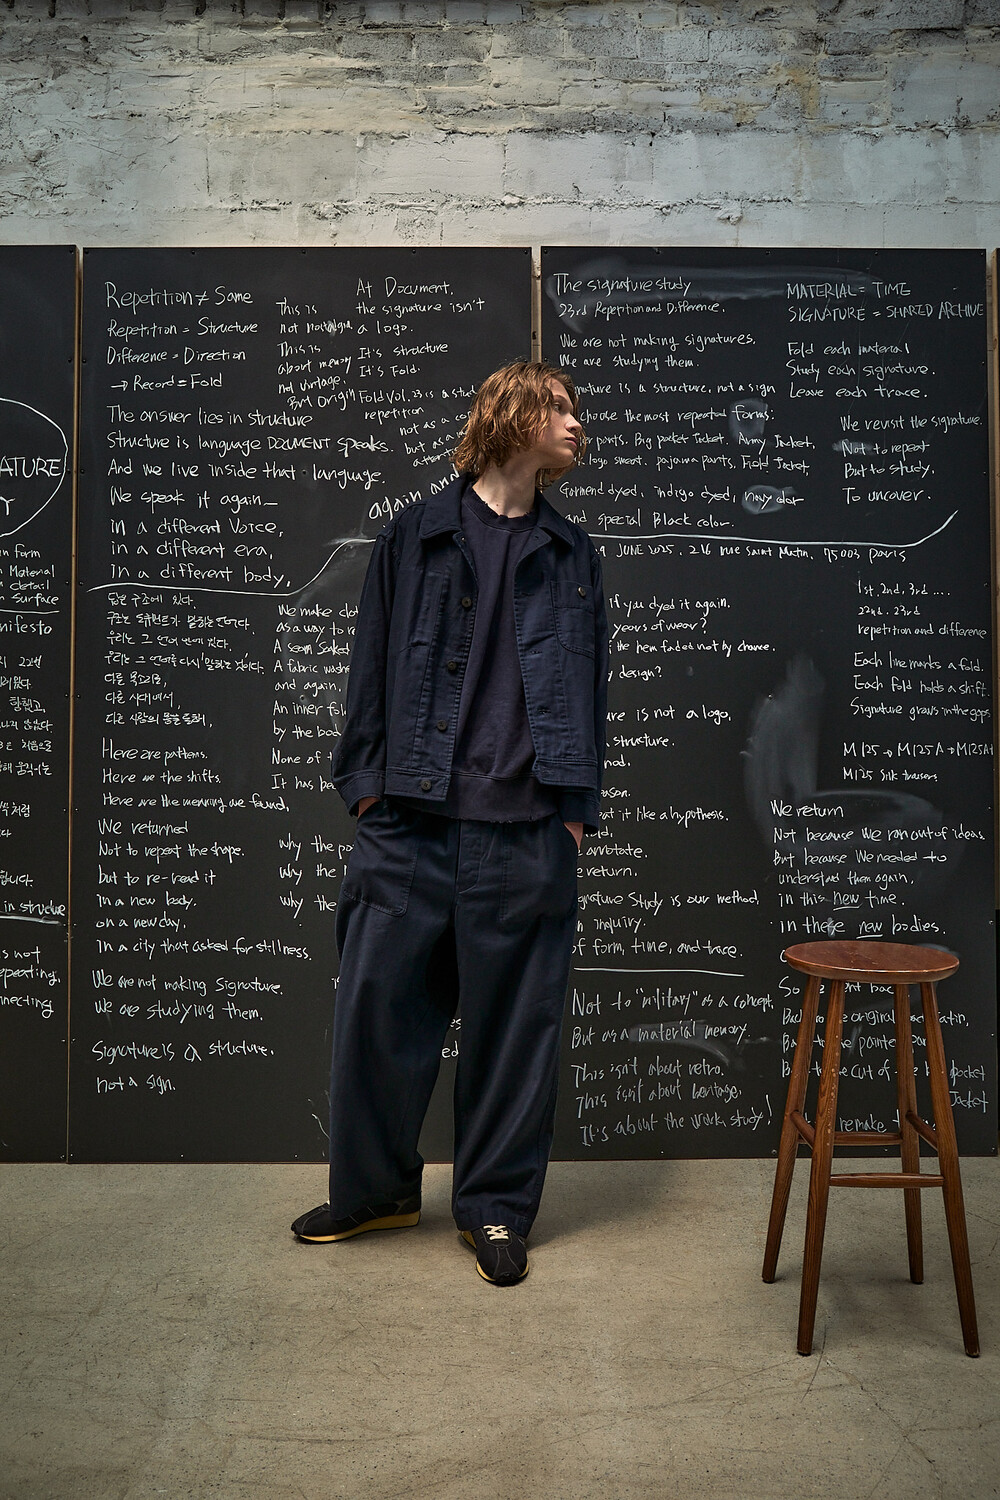 ATURE
Y
n form
Material
detail
Surface
nifesto
in structure
is not
epeating,
nnecting
Repetition ≠ Same
Repetition = Structure
Difference = Direction
→ Record = Fold
The answer lies in structure
Structure is language DOCUMENT speaks.
And we live inside that language.
We speak it again—
in a different Voice,
in a different era,
in a different body.
This is
not nostalgia
This is
about memory
not vintage.
At Document,
the signature isn't
a logo.
It's structure
It's Fold.
Fold Vol. 23 is a stud
repetition
not as a co
but as a
again and
답은 구조에 있다.
우리는 그 언어 안에 있다.
우리는 그 언어를 다시 말하는 것이다.
다른 목소리로,
다른 시대에서,
다른 사람의 몸을 통해,
Here are patterns.
Here are the shifts.
Here are the meaning we found,
We returned
Not to repeat the shape.
but to re-read it
in a new body.
on a new day.
in a city that asked for stillness.
We are not making Signature.
We are studying them.
Signature is a structure.
not a sign.
We make clot
as a way to re
A seam soaked
A fabric washe
and again.
An inner fol
by the bod
None of t
It has be
why the po
why the
why the
The signature study
23rd Repetition and Difference.
We are not making signatures.
We are studying them.
nature is a structure, not a sign
choose the most repeated forms:
r pants. Big pocket Jacket. Army Jacket,
logo sweat. pajama pants. Field Jacket,
Garment dyed, indigo dyed, navy color
and special Black color.
9 JUNE 2025. 216 rue Saint Martin, 75003 paris
MATERIAL = TIME
SIGNATURE = SHARED ARCHIVE
Fold each material
Study each signature.
Leave each trace.
We revisit the signature.
Not to repeat
But to study.
To uncover.
if you dyed it again.
years of wear?
the hem faded not by chance.
design?
re is not a logo.
structure.
eason.
at it like a hypothesis.
old.
annotate.
return.
gnature Study is our method
inquiry.
of form, time, and trace.
Not to "military" as a concept,
But as a material memory.
This isn't about retro.
This isn't about heritage.
It's about the work study!
1st, 2nd, 3rd ....
22nd. 23rd
repetition and difference
Each line marks a fold.
Each Fold holds a shift.
Signature grows in the gaps
M125 → M125A → M125A+
M125 Silk trousers
We return
Not because We ran out of ideas
But because We needed to
understand them again,
in this new time.
in these new bodies.
So
original
painter
cut of
pocket
Jacket
remake